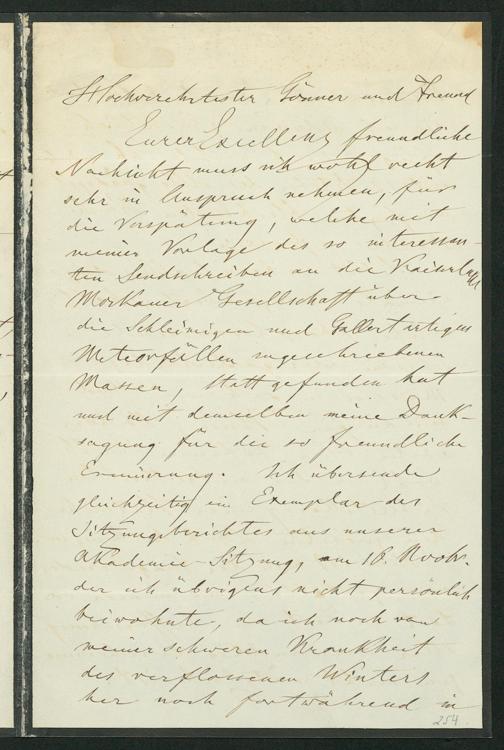 Hochverehrtester Gönner und Freund
Eurer Excellenz freundliche
Nachsicht muss ich wohl recht
sehr in Anspruch nehmen, für
die Verspätung, welche mit
meiner Vorlage des so interessan-
ten Sendschreiben an die Kaiserliche
Moskauer Gesellschaft über
die Schleimigen und Gallertartigen
Meteorfällen zugeschriebenen
Massen, stattgefunden hat
und mit demselben meine Dank-
sagung für die so freundliche
Erinnerung. Ich übersende
gleichzeitig ein Exemplar des
Sitzungsberichtes aus unserer
Akademie-Sitzung, am 18. Novbr.
der ich übrigens nicht persönlich
beiwohnte, da ich noch von
meiner schweren Krankheit
des verflossenen Winters
her noch fortwährend in
254